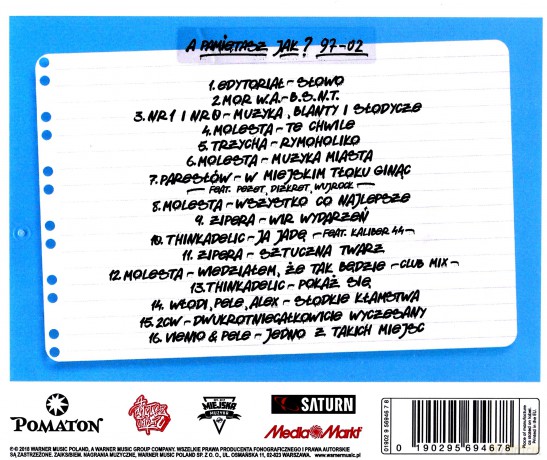 A PAMIĘTASZ JAK? 97-02
1. EDYTORIAŁ - SŁOWO
2. MOR W.A. - B.S.N.T.
3. NR1 I NR0 - MUZYKA, BLANTY I SŁODYCZE
4. MOLESTA - TE CHWILE
5. TRZYCHA - RYMOHOLIKO
6. MOLESTA - MUZYKA MIASTA
7. PARESŁÓW - W MIEJSKIM TŁOKU GINĄC
- FEAT. PEZET, DIZKRET, WUJROCK -
8. MOLESTA - WSZYSTKO CO NAJLEPSZE
9. ZIPERA - WIR WYDARZEŃ
10. THINKADELIC - JA JADĘ - FEAT. KALIBER 44 -
11. ZIPERA - SZTUCZNA TWARZ
12. MOLESTA - WIEDZIAŁEM, ŻE TAK BĘDZIE - CLUB MIX -
13. THINKADELIC - POKAŻ SIĘ
14. WŁODI, PELE, ALEX - SŁODKIE KŁAMSTWA
15. 2CW - DWUKROTNIEGAŁKOWICIE WYCZESANY
16. VIENIO & PELE - JEDNO Z TAKICH MIEJSC
POMATON
MIEJSKA
MUZYKA
SATURN
Media Markt
01902 9 56946 7 8
0 190295 694678
℗ © 2018 WARNER MUSIC POLAND, A WARNER MUSIC GROUP COMPANY. WSZELKIE PRAWA PRODUCENTA FONOGRAFICZNEGO I PRAWA AUTORSKIE
SĄ ZASTRZEŻONE. ZAIKS/BIEM. NAGRANIA MUZYCZNE. WARNER MUSIC POLAND SP. Z O. O., UL. OSMAŃSKA 11, 02-823 WARSZAWA. www.warnermusic.pl
Place of manufacture
as stated on label.
Printed in the EU.